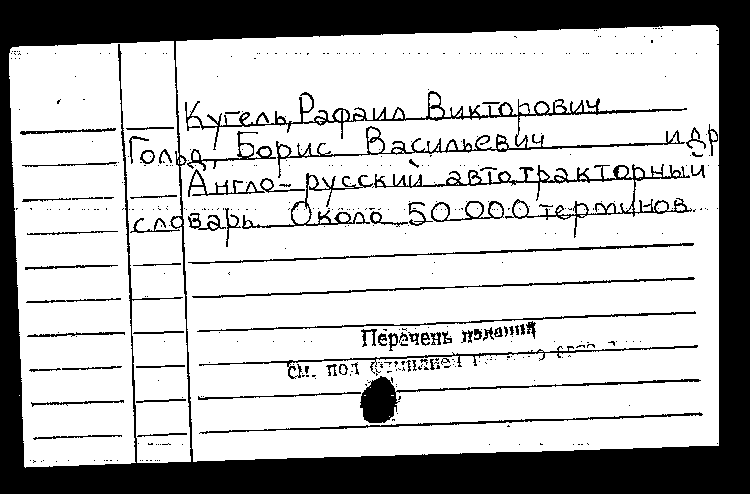 Кугель, Рафаил Викторович
Гольд, Борис Васильевич и др
Англо-русский автотракторный
словарь. Около 50 000 терминов.
Перечень издания
См. под фамилией